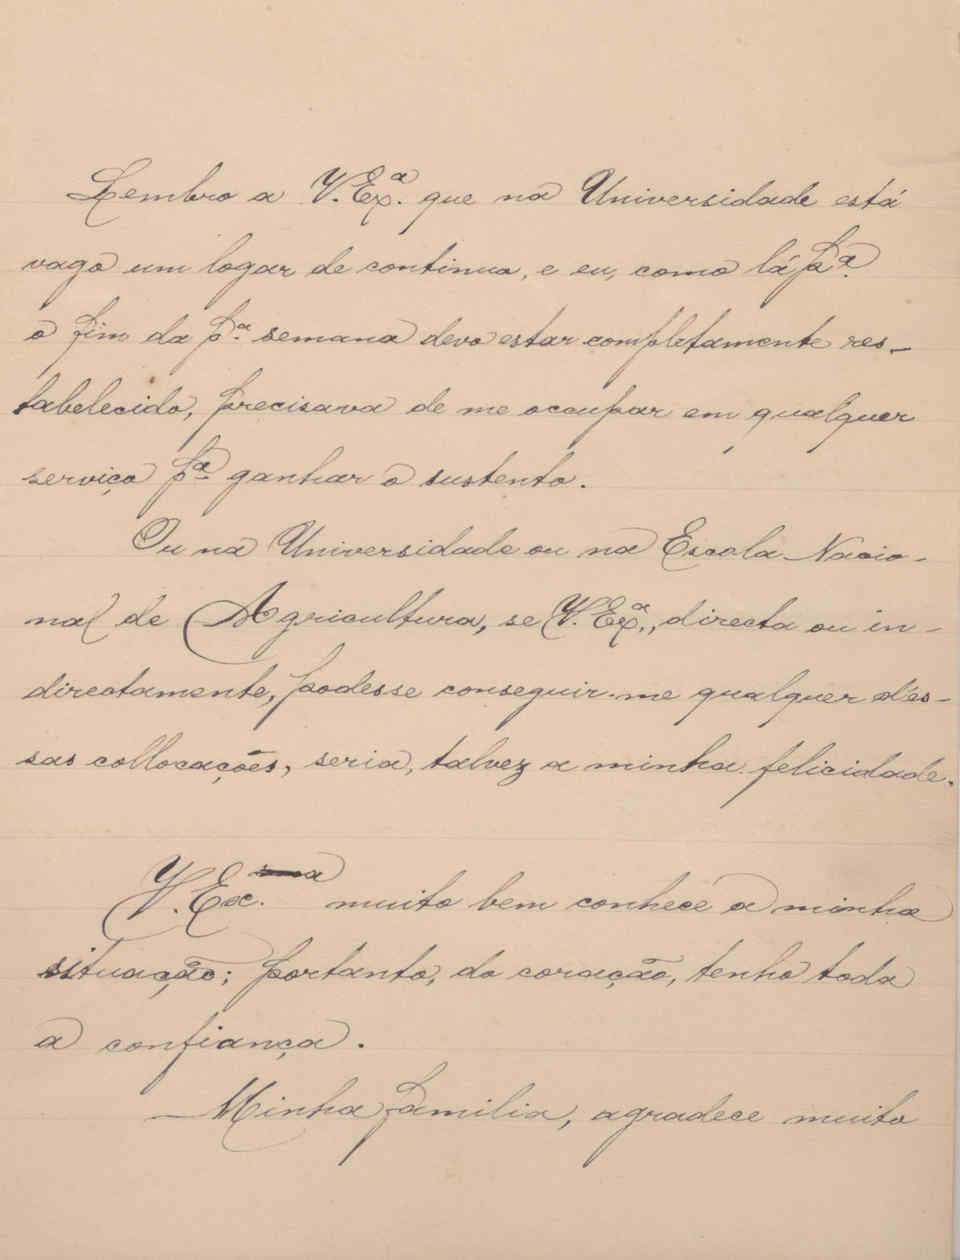 Lembro a V. Exª. que na Universidade está
vago um logar de continuo, e eu, como lá pª.
o fim da pª. semana devo estar completamente res-
tabelecido, precisava de me occupar em qualquer
serviço pª ganhar o sustento.
Ou na Universidade ou na Escola Nacio-
nal de Agricultura, se V. Exª., directa ou in-
directamente, podesse conseguir-me qualquer d'es-
sas collocações, seria, talvez a minha felicidade.
V. Exc.ª muito bem conhece a minha
situação; portanto, do coração, tenho toda
a confiança.
Minha familia, agradece muito